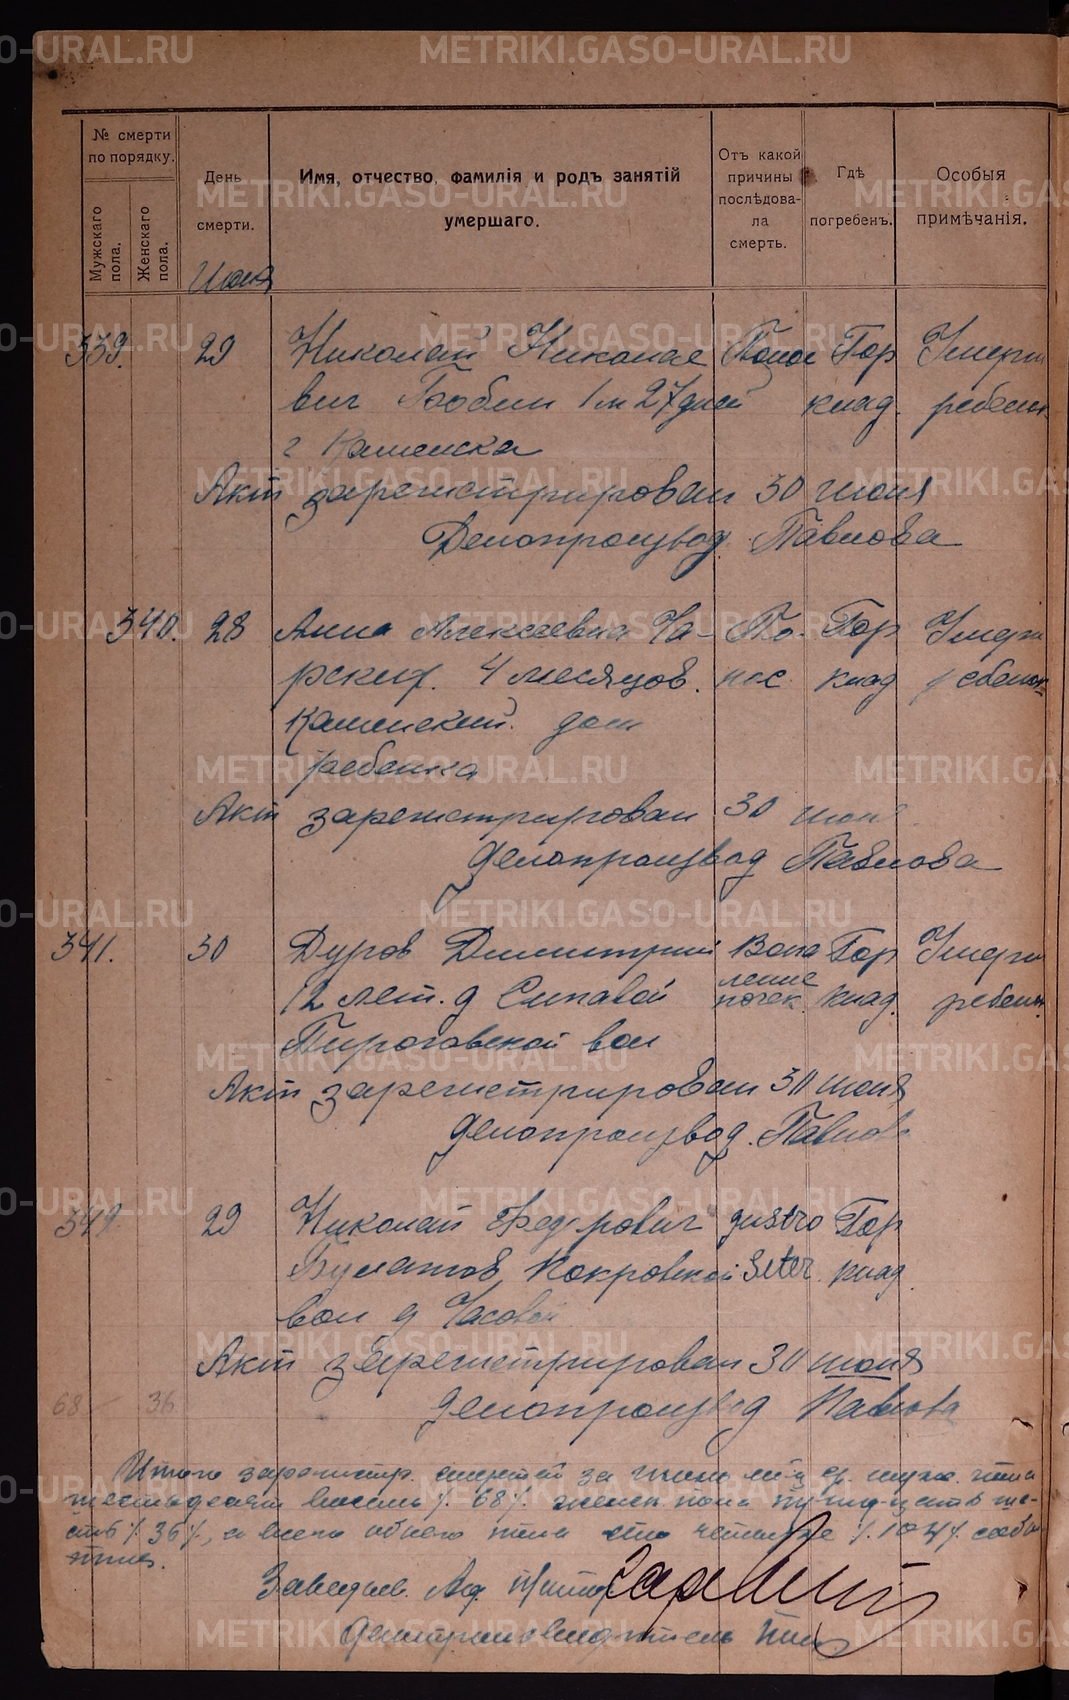 METRIKI.GASO-URAL.RU
№ смерти по порядку.
Мужскаго пола.
Женскаго пола.
День смерти.
Имя, отчество, фамилія и родъ занятій умершаго.
Отъ какой причины послѣдовала смерть.
Гдѣ погребенъ.
Особыя примѣчанія.
Июня
339. 29 Николай Николае Понос Гор Умерш
вич Бобин 1 м 27 дней клад. ребенк
г Каменска
Акт зарегистрирован 30 июня
Делопроизвод. Павлова
340. 28 Анна Алексеевна Ча- По- Гор Умерш
рских. 4 месяцов. нос клад ребенок
Каменский. дом
ребенка
Акт зарегистрирован 30 июня
Делопроизвод Павлова
341. 30 Дуров Димитрий Воспа Гор Умерш
12 лет. д Сипавой ление почек. клад. ребенк.
Пироговской вол
Акт зарегистрирован 30 июня
Делопроизвод. Павлова
342. 29 Николай Федорович gastro Гор
Булатов Покровской клад.
вол д Часовой
Акт зарегистрирован 30 июня
делопроизвод Павлова
68 — 36
Итого зарегистр. смертей за июнь м-ц муж. пола
шестьдесят восемь /. 68 /. женск пола тридцать ше-
сть /. 36 /, а всего обоего пола сто четыре /. 104 /. собы
тия.
Заведыв.
Делопроизводитель